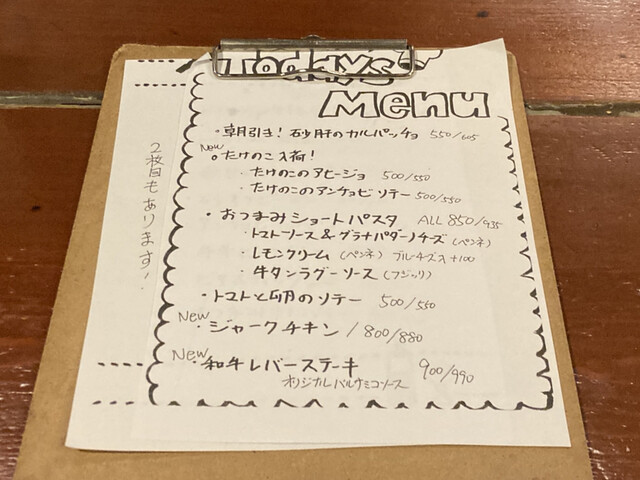 Today's
Menu
・朝引き！砂肝のカルパッチョ 550/605
New
。たけのこ入荷！
・たけのこのアヒージョ 500/550
・たけのこのアンチョビソテー 500/550
・おつまみショートパスタ ALL 850/935
・トマトソース&グラナパダーノチーズ（ペンネ）
・レモンクリーム（ペンネ）ブルーチーズ入+100
・牛タンラグーソース（フジッリ）
・トマトと卵のソテー 500/550
New
・ジャークチキン / 800/880
New
・和牛レバーステーキ 900/990
オリジナルバルサミコソース
2枚目もあります！